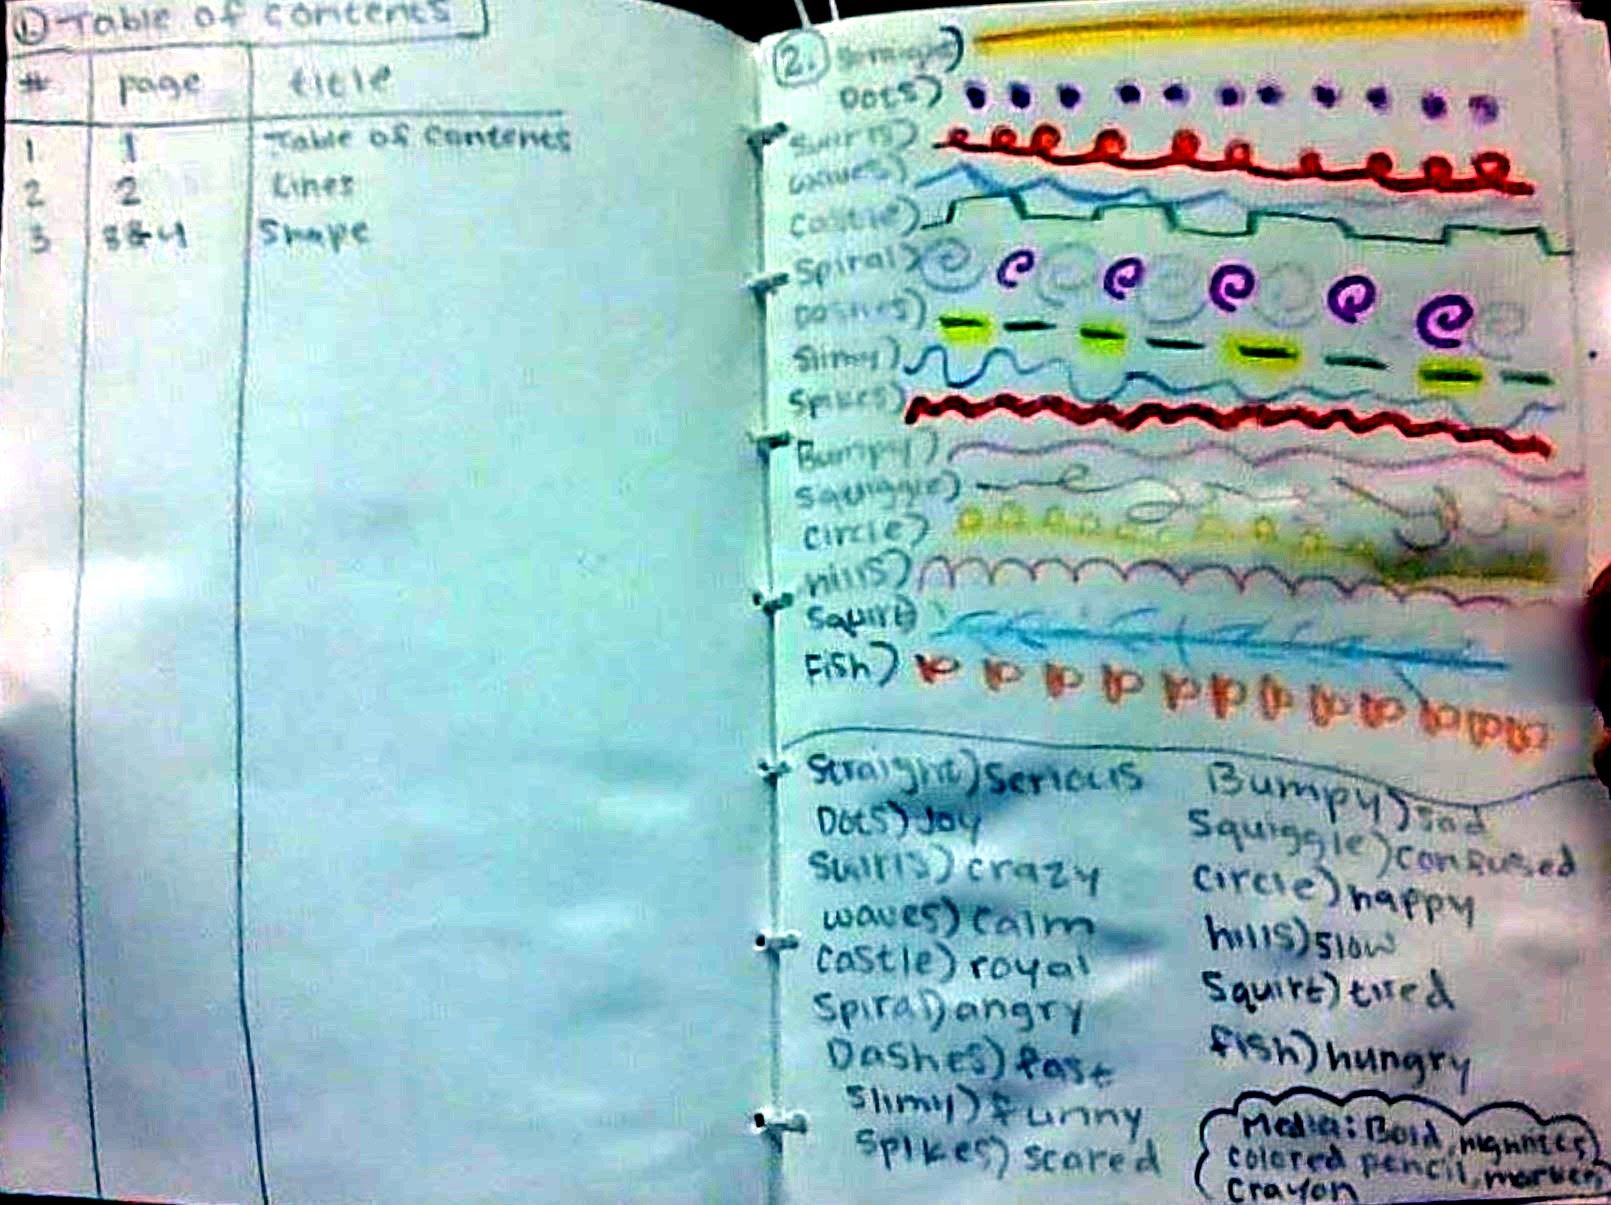 1. Table of contents
# page title
1 1 Table of contents
2 2 Lines
3 3&4 Shape
2. Straight)
Dots)
Swirls)
waves)
Castle)
Spiral)
Dashes)
Slimy)
Spikes)
Bumpy)
Squiggle)
circle)
hills)
Squirt)
Fish)
Straight) serious
Dots) Joy
Swirls) crazy
waves) calm
castle) royal
Spiral) angry
Dashes) fast
Slimy) funny
Spikes) scared
Bumpy) sad
Squiggle) confused
circle) happy
hills) slow
Squirt) tired
fish) hungry
Media: Bold
colored pencil, marker,
crayon